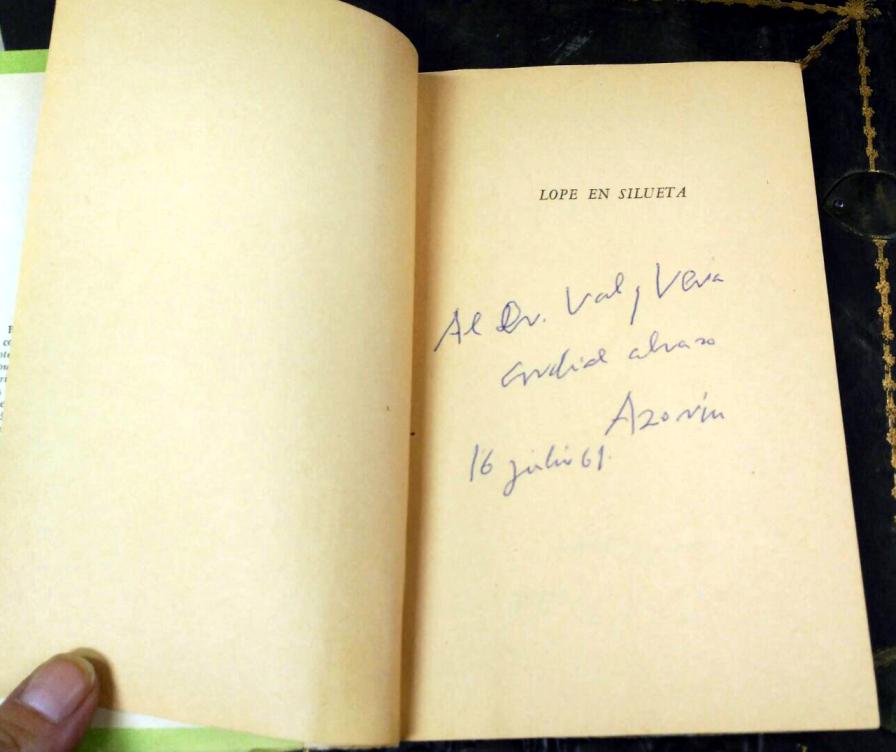 LOPE EN SILUETA
Al Dr. Val y Vera
cordial abrazo
Azorín
16 julio 61.